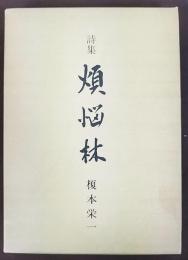 詩集
煩悩林
榎本栄一